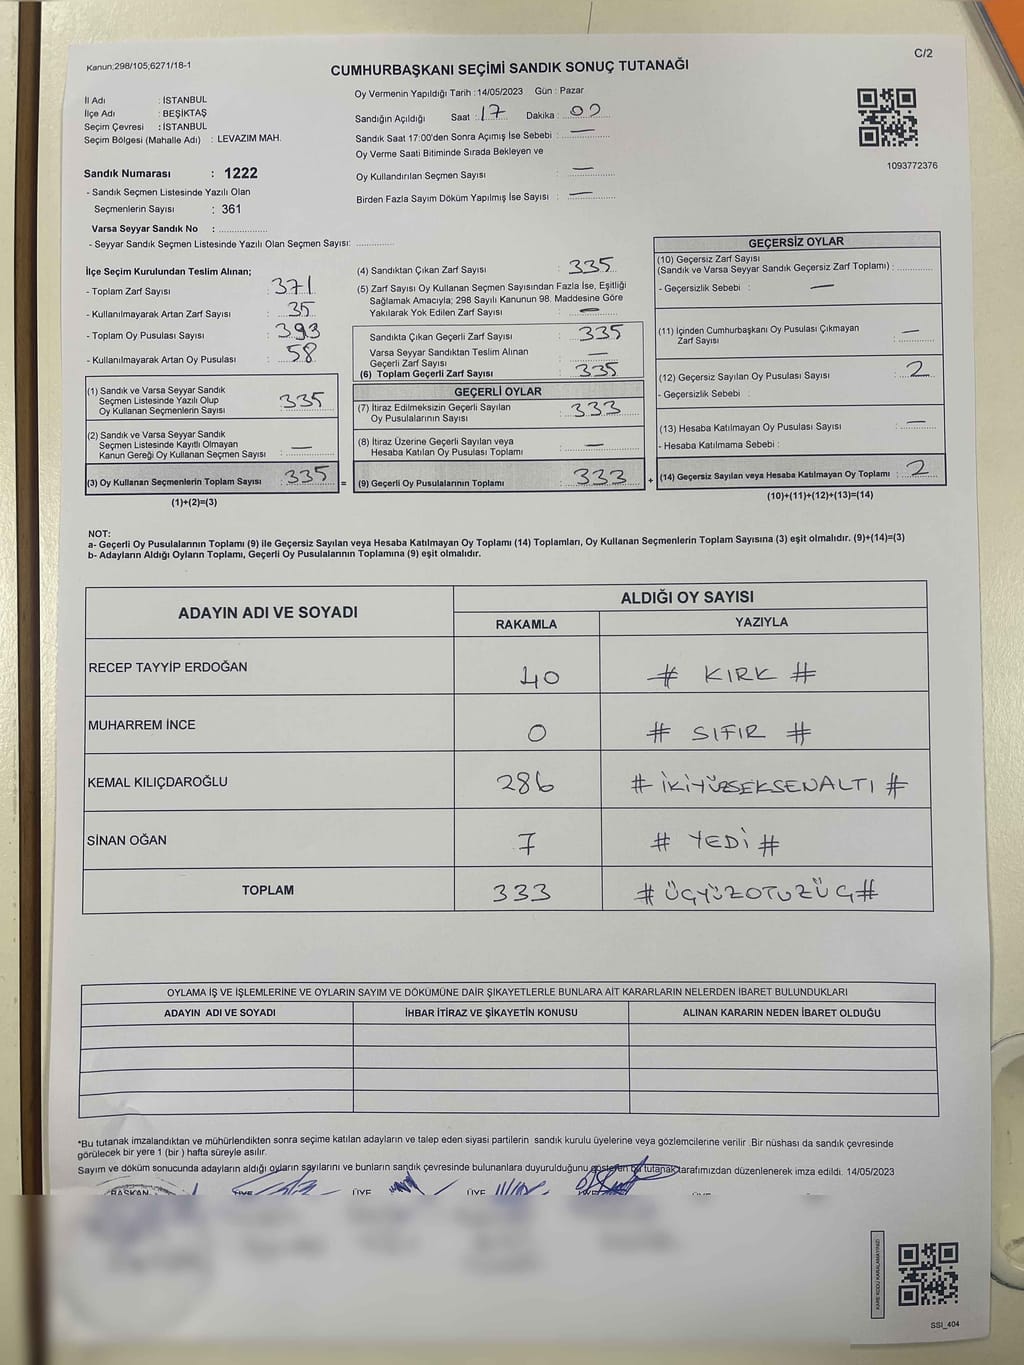 Kanun;298/105,6271/18-1
C/2
CUMHURBAŞKANI SEÇİMİ SANDIK SONUÇ TUTANAĞI
İl Adı : İSTANBUL
İlçe Adı : BEŞİKTAŞ
Seçim Çevresi : İSTANBUL
Seçim Bölgesi (Mahalle Adı) : LEVAZIM MAH.
Sandık Numarası : 1222
- Sandık Seçmen Listesinde Yazılı Olan
Seçmenlerin Sayısı : 361
Varsa Seyyar Sandık No :
- Seyyar Sandık Seçmen Listesinde Yazılı Olan Seçmen Sayısı:
Oy Vermenin Yapıldığı Tarih :14/05/2023 Gün : Pazar
Sandığın Açıldığı Saat : 17 Dakika : 00
Sandık Saat 17:00'den Sonra Açımış İse Sebebi : —
Oy Verme Saati Bitiminde Sırada Bekleyen ve
Oy Kullandırılan Seçmen Sayısı : —
Birden Fazla Sayım Döküm Yapılmış İse Sayısı : —
1093772376
İlçe Seçim Kurulundan Teslim Alınan;
- Toplam Zarf Sayısı : 371
- Kullanılmayarak Artan Zarf Sayısı : 35
- Toplam Oy Pusulası Sayısı : 393
- Kullanılmayarak Artan Oy Pusulası : 58
(1) Sandık ve Varsa Seyyar Sandık
Seçmen Listesinde Yazılı Olup
Oy Kullanan Seçmenlerin Sayısı : 335
(2) Sandık ve Varsa Seyyar Sandık
Seçmen Listesinde Kayıtlı Olmayan
Kanun Gereği Oy Kullanan Seçmen Sayısı : —
(3) Oy Kullanan Seçmenlerin Toplam Sayısı : 335
=
(1)+(2)=(3)
(4) Sandıktan Çıkan Zarf Sayısı : 335
(5) Zarf Sayısı Oy Kullanan Seçmen Sayısından Fazla İse, Eşitliği
Sağlamak Amacıyla; 298 Sayılı Kanunun 98. Maddesine Göre
Yakılarak Yok Edilen Zarf Sayısı : —
Sandıkta Çıkan Geçerli Zarf Sayısı : 335
Varsa Seyyar Sandıktan Teslim Alınan
Geçerli Zarf Sayısı : —
(6) Toplam Geçerli Zarf Sayısı : 335
GEÇERLİ OYLAR
(7) İtiraz Edilmeksizin Geçerli Sayılan
Oy Pusulalarının Sayısı : 333
(8) İtiraz Üzerine Geçerli Sayılan veya
Hesaba Katılan Oy Pusulası Toplamı : —
(9) Geçerli Oy Pusulalarının Toplamı : 333
+
GEÇERSİZ OYLAR
(10) Geçersiz Zarf Sayısı
(Sandık ve Varsa Seyyar Sandık Geçersiz Zarf Toplamı) :
- Geçersizlik Sebebi : —
(11) İçinden Cumhurbaşkanı Oy Pusulası Çıkmayan
Zarf Sayısı : —
(12) Geçersiz Sayılan Oy Pusulası Sayısı : 2
- Geçersizlik Sebebi :
(13) Hesaba Katılmayan Oy Pusulası Sayısı : —
- Hesaba Katılmama Sebebi :
(14) Geçersiz Sayılan veya Hesaba Katılmayan Oy Toplamı : 2
(10)+(11)+(12)+(13)=(14)
NOT:
a- Geçerli Oy Pusulalarının Toplamı (9) ile Geçersiz Sayılan veya Hesaba Katılmayan Oy Toplamı (14) Toplamları, Oy Kullanan Seçmenlerin Toplam Sayısına (3) eşit olmalıdır. (9)+(14)=(3)
b- Adayların Aldığı Oyların Toplamı, Geçerli Oy Pusulalarının Toplamına (9) eşit olmalıdır.
ADAYIN ADI VE SOYADI ALDIĞI OY SAYISI
RAKAMLA YAZIYLA
RECEP TAYYİP ERDOĞAN 40 # KIRK #
MUHARREM İNCE 0 # SIFIR #
KEMAL KILIÇDAROĞLU 286 # İKİYÜZSEKSENALTI #
SİNAN OĞAN 7 # YEDİ #
TOPLAM 333 # ÜÇYÜZOTUZÜÇ #
OYLAMA İŞ VE İŞLEMLERİNE VE OYLARIN SAYIM VE DÖKÜMÜNE DAİR ŞİKAYETLERLE BUNLARA AİT KARARLARIN NELERDEN İBARET BULUNDUKLARI
ADAYIN ADI VE SOYADI İHBAR İTİRAZ VE ŞİKAYETİN KONUSU ALINAN KARARIN NEDEN İBARET OLDUĞU
*Bu tutanak imzalandıktan ve mühürlendikten sonra seçime katılan adayların ve talep eden siyasi partilerin sandık kurulu üyelerine veya gözlemcilerine verilir .Bir nüshası da sandık çevresinde
görülecek bir yere 1 (bir ) hafta süreyle asılır.
Sayım ve döküm sonucunda adayların aldığı oyların sayılarını ve bunların sandık çevresinde bulunanlara duyurulduğunu gösteren bu tutanak tarafımızdan düzenlenerek imza edildi. 14/05/2023
BAŞKAN ÜYE ÜYE ÜYE ÜYE
KARE KODU KARALAMAYINIZ!
SSI_404